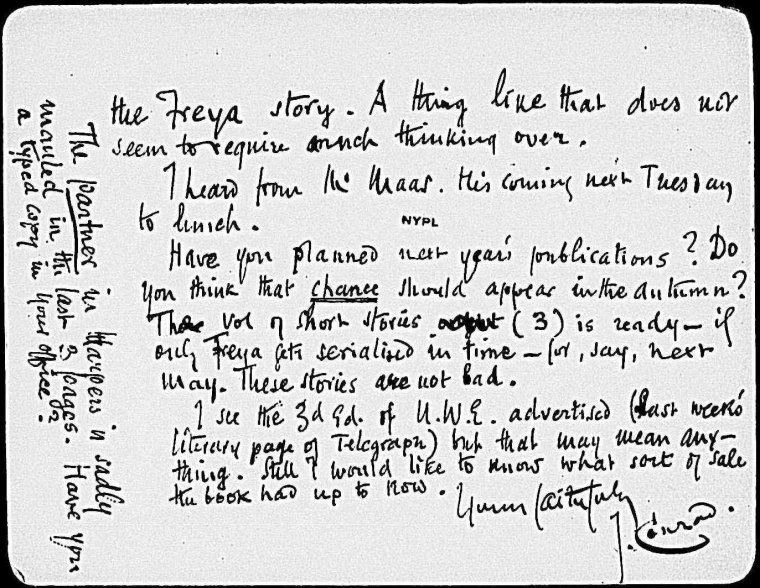 the Freya story. A thing like that does not
seem to require much thinking over.
I heard from Mr Maas. His coming next Tuesday
to lunch.
NYPL
Have you planned next year's publications? Do
you think that chance should appear in the autumn?
The vol of short stories (3) is ready – if
only Freya gets serialised in time – for, say, next
May. These stories are not bad.
I see the 3d Ed. of U.W.E. advertised (last week's
literary page of Telegraph) but that may mean any–
thing. Still I would like to know what sort of sale
the book had up to now.
Yours faithfully
J. Conrad.
The partner in Harpers is sadly
mauled in the last 3 pages. Have you
a typed copy in your office?